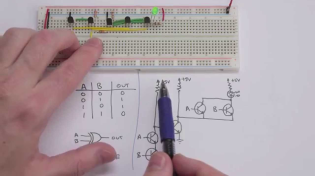 +5V
+5V
+5V
A B OUT
0 0 0
0 1 1
1 0 1
1 1 0
A
B
OUT
A
B
A
B